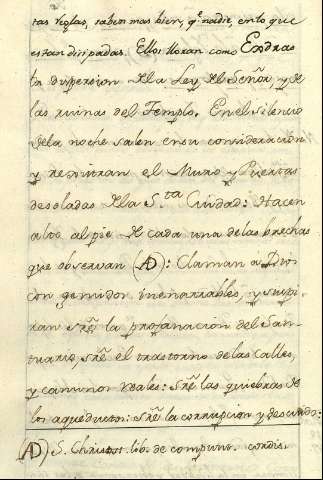 tas reglas, saben mas bien, q.e nadie, en lo que
estan disipadas. Ellos lloran como Esdras
la dispersion de la Ley del Señor, y de
las ruinas del Templo. En el silencio
de la noche salen en su consideracion
y registran el Muro y Puertas
desoladas de la S.ta Ciudad: Hacen
alto al pie de cada una de las brechas
que observan (AD): Claman a Dios
con gemidos inenarrables, y suspi-
ran sre la profanacion del San-
tuario, sre el trastorno de las calles,
y caminos reales: sre las quiebras de
los aqueductos: sre la corrupcion y descuido:
(AD) S. Christost. lib. de compunt. cordis.